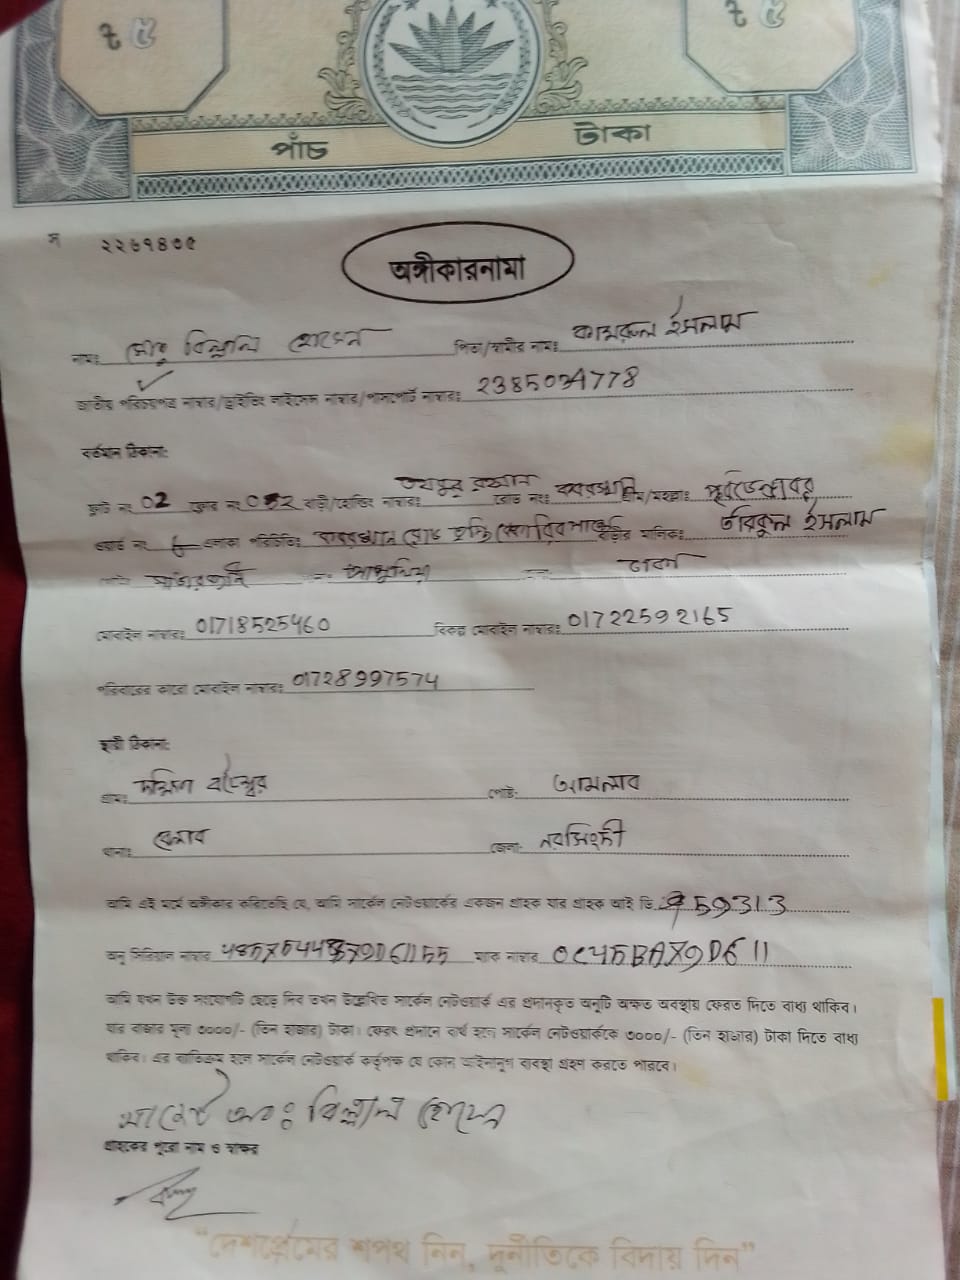 ৳ ৫ ৳ ৫
পাঁচ টাকা
২২৬৭৪৩৫
অঙ্গীকারনামা
নামঃ মোঃ বিল্লাল হোসেন পিতা/স্বামীর নামঃ কামরুল ইসলাম
জাতীয় পরিচয়পত্র নাম্বার/ড্রাইভিং লাইসেন্স নাম্বার/পাসপোর্ট নাম্বারঃ 2385034778
বর্তমান ঠিকানা:
ফ্লাট নং 02 ফ্লোর নং বাড়ী/হোল্ডিং নাম্বারঃ রোড নং: কবরস্থান
ওয়ার্ড নং এলাকা পরিচিতিঃ কবরস্থান রোড বাড়ীর মালিক: তরিকুল ইসলাম
আশুলিয়া ঢাকা
মোবাইল নাম্বারঃ 01718525460 বিকল্প মোবাইল নাম্বারঃ 01722592165
পরিবারের কারো মোবাইল নাম্বারঃ 01728997574
স্থায়ী ঠিকানা:
গ্রামঃ দক্ষিণ পোষ্টঃ আমলাব
থানাঃ বেলাব জেলা: নরসিংদী
আমি এই মর্মে অঙ্গীকার করিতেছি যে, আমি সার্কেল নেটওয়ার্কের একজন গ্রাহক যার গ্রাহক আই ডি. 59313
অনু সিরিয়াল নাম্বার ম্যাক নাম্বার
আমি যখন উক্ত সংযোগটি ছেড়ে দিব তখন উল্লেখিত সার্কেল নেটওয়ার্ক এর প্রদানকৃত অনুটি অক্ষত অবস্থায় ফেরত দিতে বাধ্য থাকিব।
যার বাজার মূল্য ৩০০০/- (তিন হাজার) টাকা। ফেরৎ প্রদানে ব্যর্থ হলে সার্কেল নেটওয়ার্ককে ৩০০০/- (তিন হাজার) টাকা দিতে বাধ্য
থাকিব। এর ব্যতিক্রম হলে সার্কেল নেটওয়ার্ক কর্তৃপক্ষ যে কোন আইনানুগ ব্যবস্থা গ্রহণ করতে পারবে।
বিল্লাল হোসেন
গ্রাহকের পুরো নাম ও স্বাক্ষর
"দেশপ্রেমের শপথ নিন, দুর্নীতিকে বিদায় দিন"